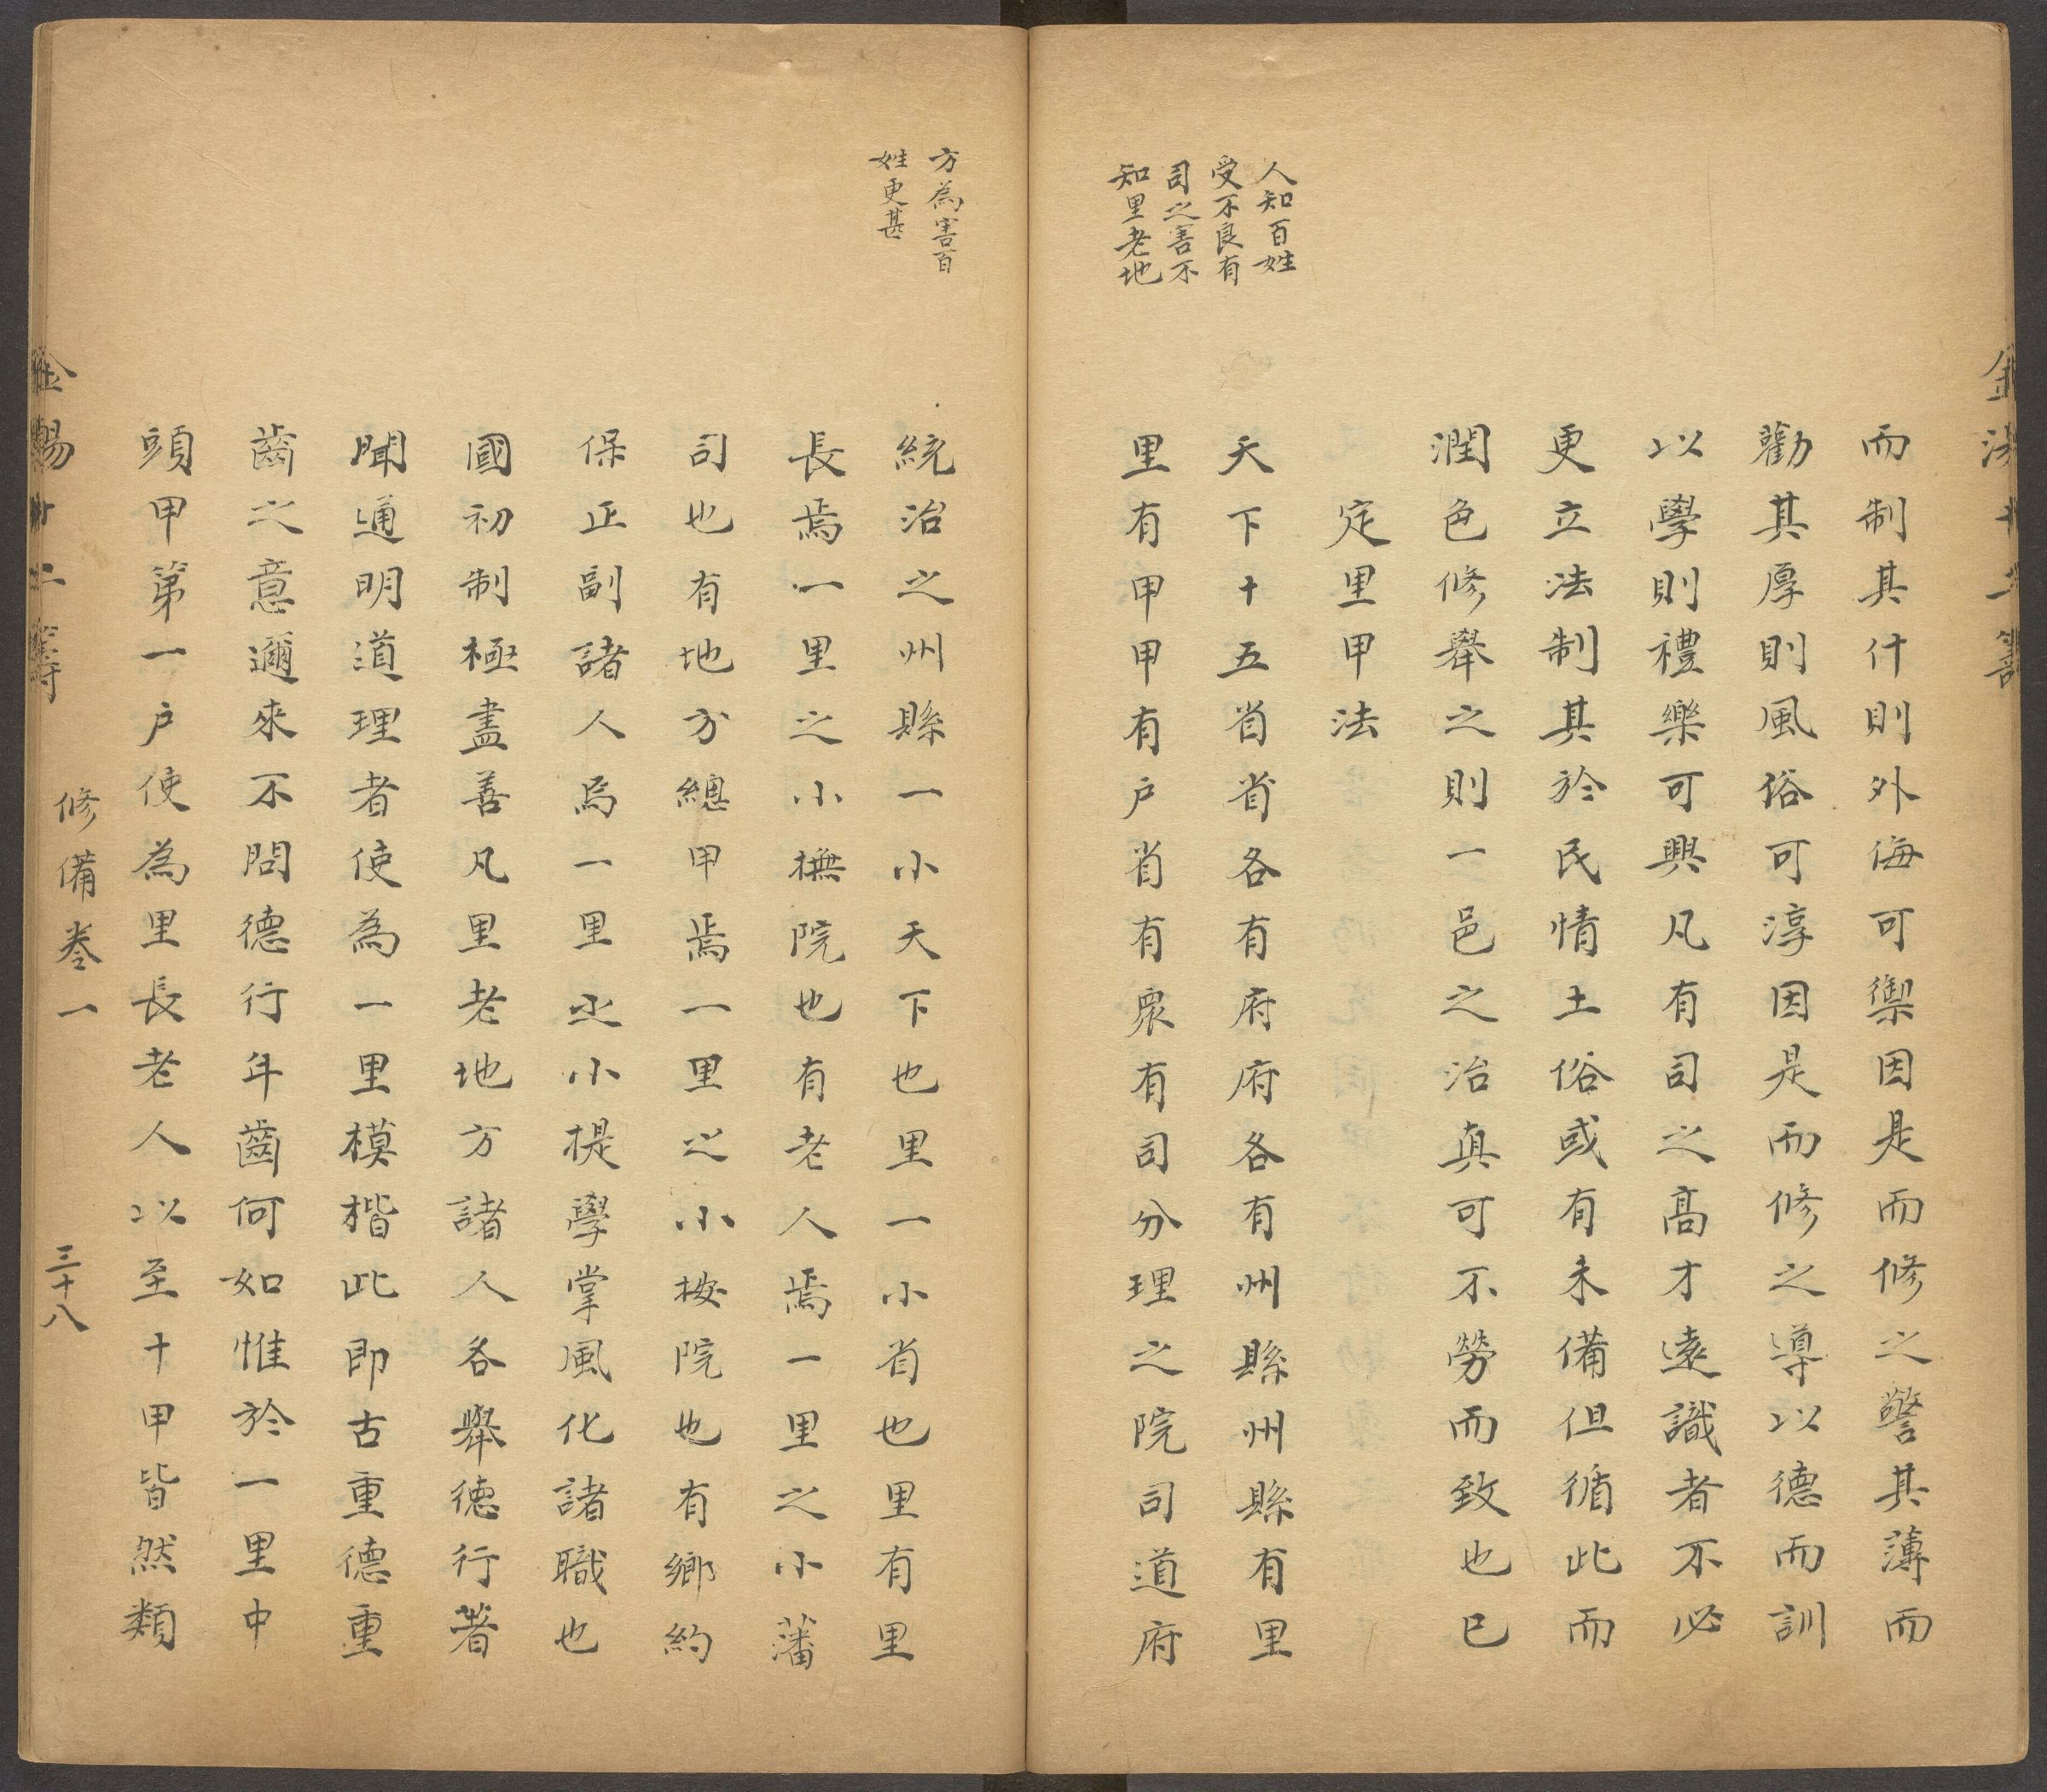 人知百姓
受不良有
司之害不
知里老地
而制其什則外侮可禦因是而修之警其薄而
勸其厚則風俗可淳因是而修之導以德而訓
以學則禮樂可興凡有司之高才遠識者不必
更立法制其於民情土俗或有未備但循此而
潤色修舉之則一邑之治真可不勞而致也已
定里甲法
天下十五省省各有府府各有州縣州縣有里
里有甲甲有户省有眾有司分理之院司道府
方為害百
姓更甚
統治之州縣一小天下也里一小省也里有里
長焉一里之小撫院也有老人焉一里之小藩
司也有地方總甲焉一里之小按院也有鄉約
保正副諸人焉一里之小提學掌風化諸職也
國初制極盡善凡里老地方諸人各舉德行著
聞通明道理者使為一里模楷此即古重德重
齒之意邇來不問德行年齒何如惟於一里中
頭甲第一户使為里長老人以至十甲皆然類
金湯十二籌
修備卷一
三十八